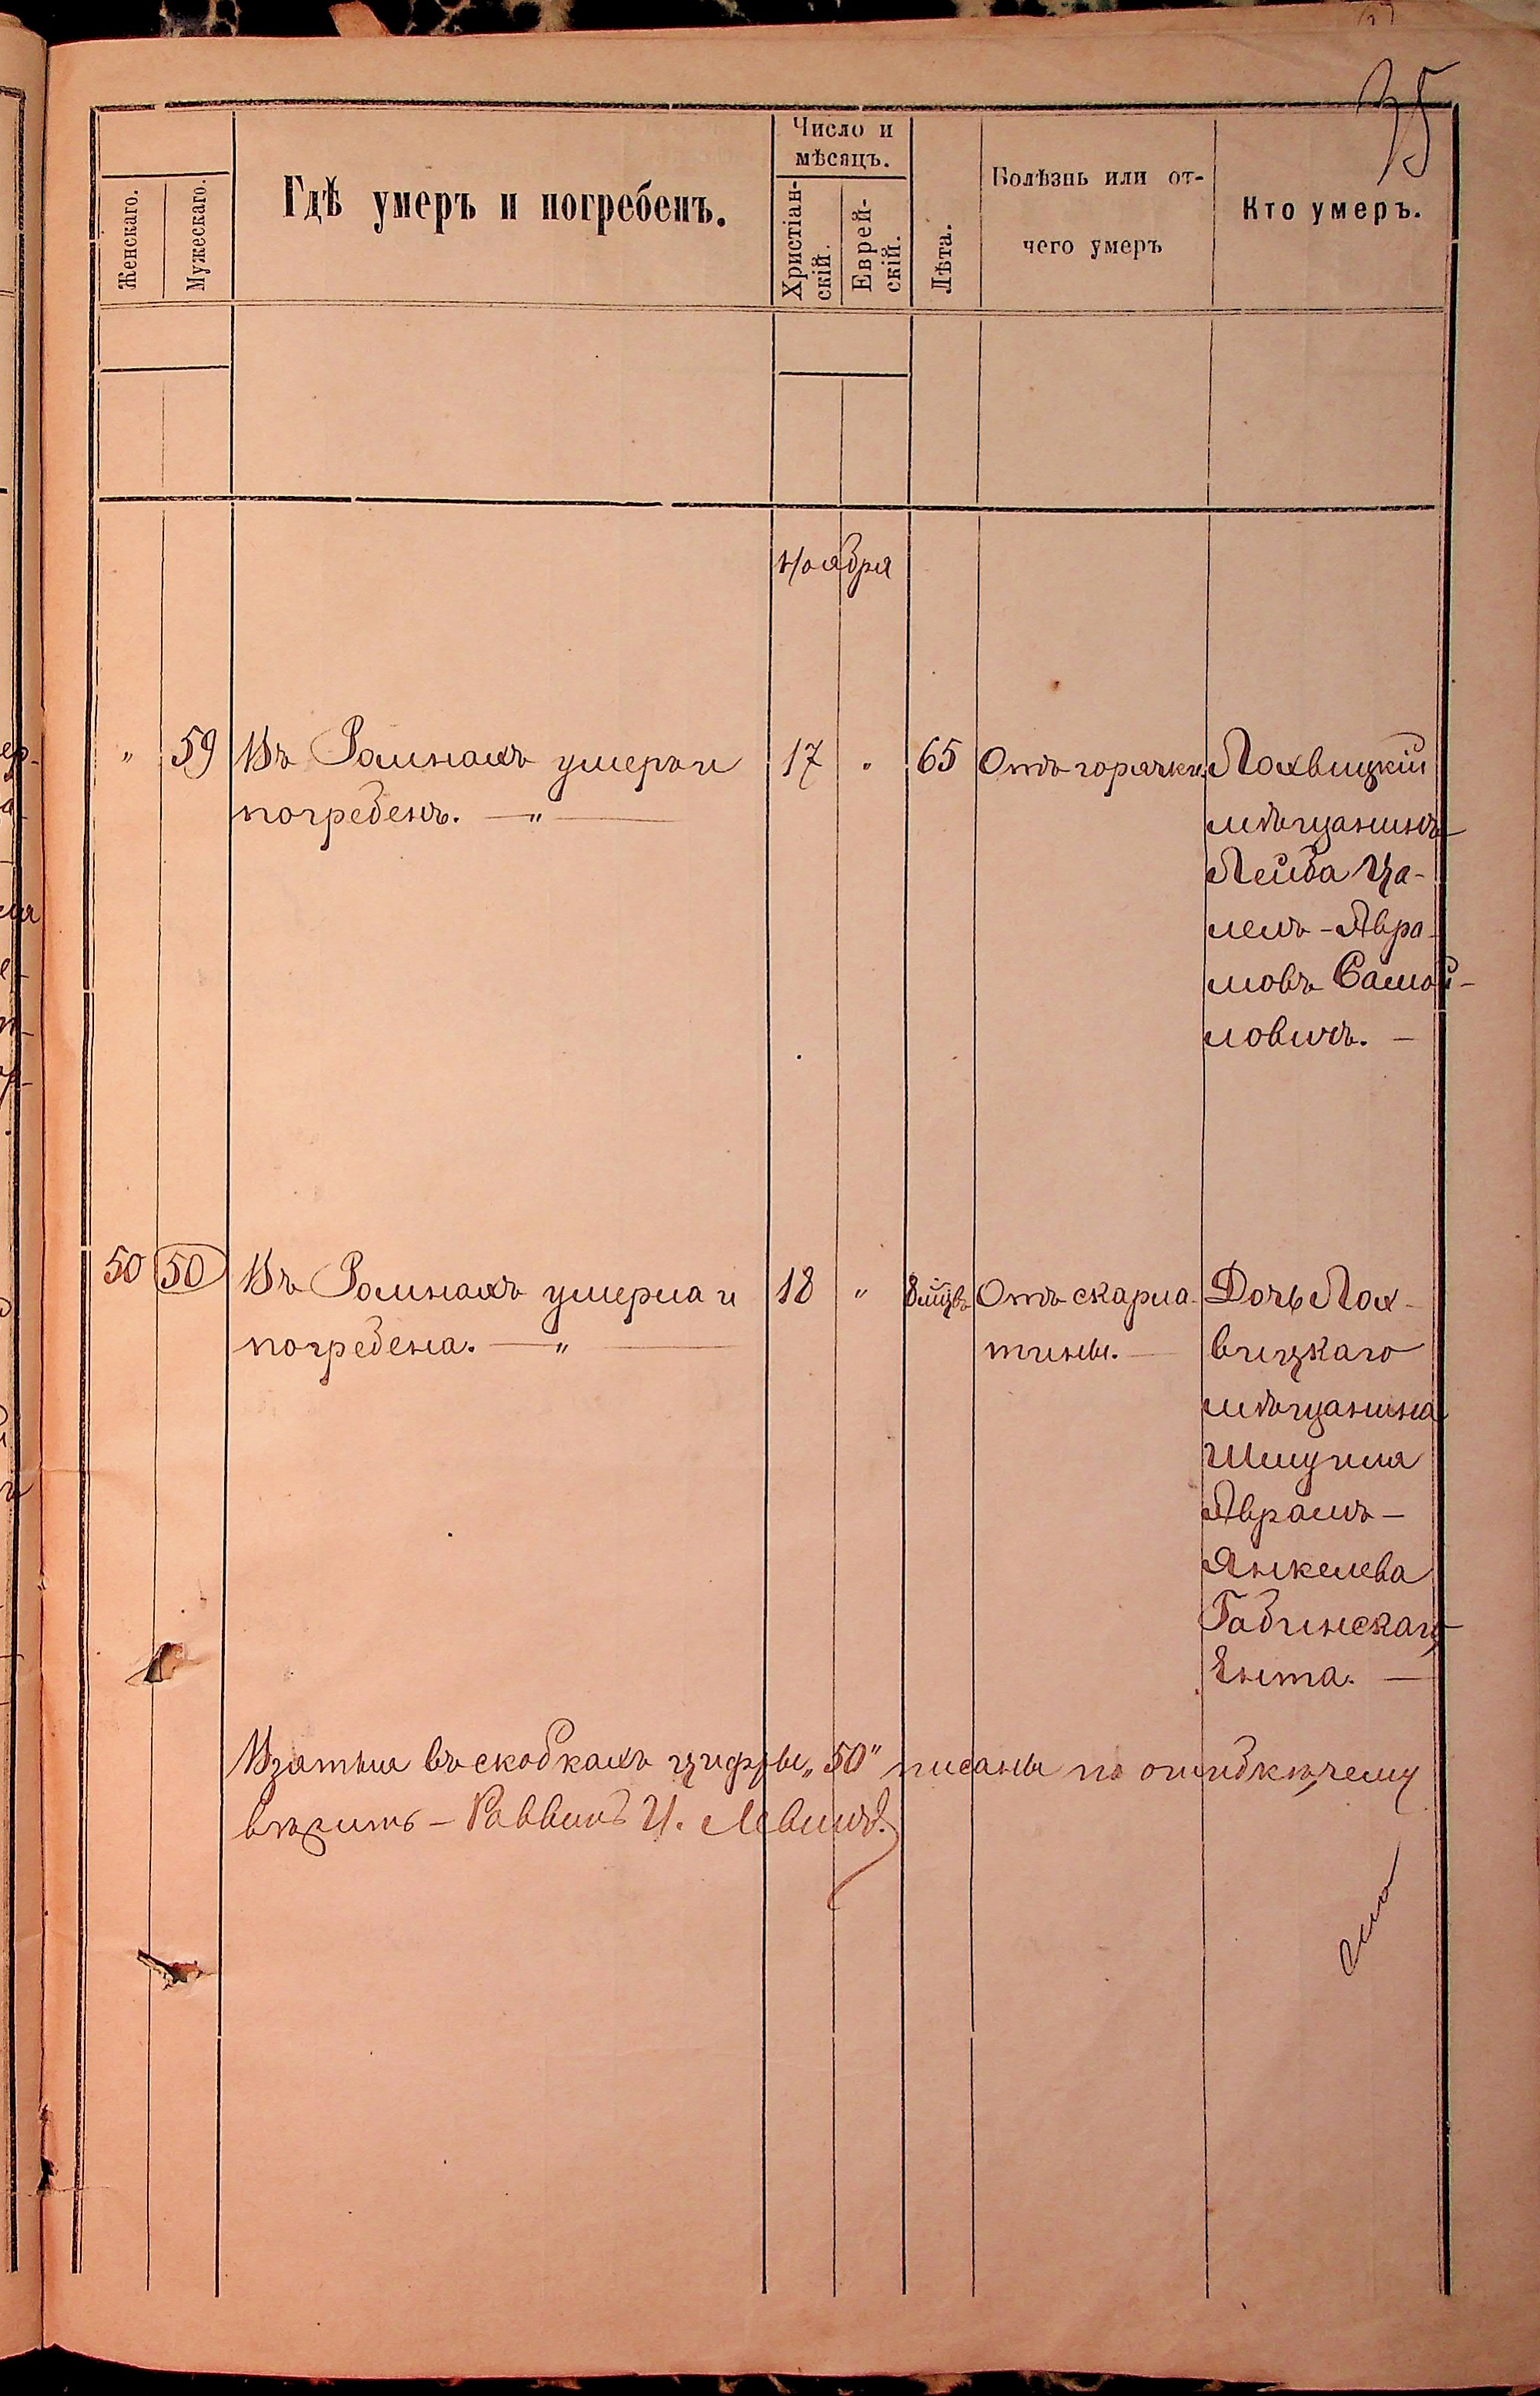 35
Женскаго.
Мужескаго.
Гдѣ умеръ и погребенъ.
Число и
мѣсяцъ.
Христіан-
скій.
Еврей-
скій.
Лѣта.
Болѣзнь или от-
чего умеръ
Кто умеръ.
Ноября
" 59 Въ Ромнахъ умеръ и 17 " 65 Отъ горячки. Лохвицкій
погребенъ. — " — мѣщанинъ
Лейба Ца-
лелъ - Авра-
мовъ Самой-
ловичъ. —
50 (50) Въ Ромнахъ умерла и 18 " 8 мѣц. Отъ скарла- Дочь Лох-
погребена. — " — тины. — вицкаго
мѣщанина
Шмуила
Аврамъ -
Янкелева
Габинскаго
Ента. —
Взятыя въ скобкахъ цифры „50" писаны по ошибкѣ, чему
вѣрить - Раввинъ И. Левинъ.